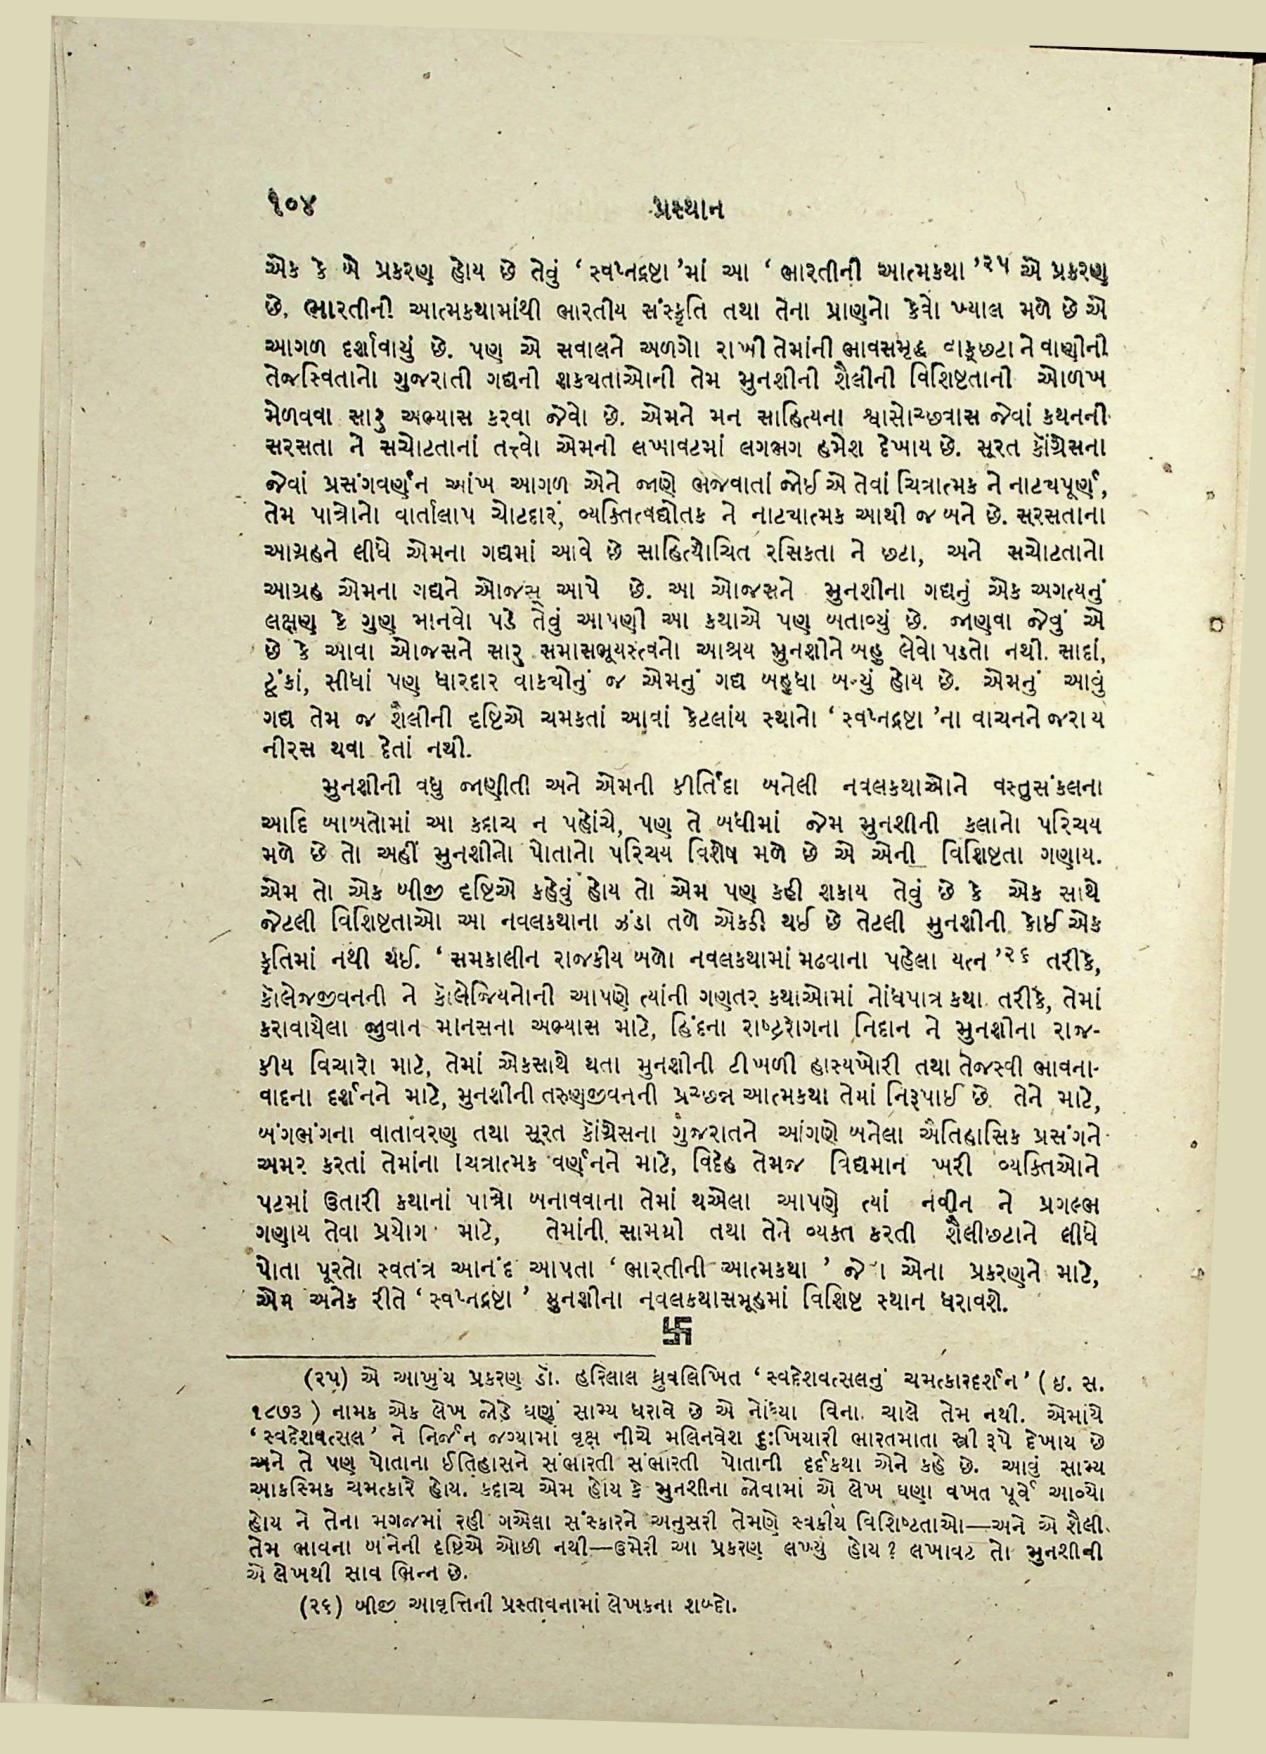 ૧૦૪ પ્રસ્થાન
એક કે બે પ્રકરણ હોય છે તેવું ‘ સ્વપ્નદ્રષ્ટા ’માં આ ‘ ભારતીની આત્મકથા ’૨૫ એ પ્રકરણ
છે. ભારતીની આત્મકથામાંથી ભારતીય સંસ્કૃતિ તથા તેના પ્રાણનો કેવો ખ્યાલ મળે છે એ
આગળ દર્શાવાયું છે. પણ એ સવાલને અળગો રાખી તેમાંની ભાવસમૃદ્ધ વાક્છટા ને વાણીની
તેજસ્વિતાનો ગુજરાતી ગદ્યની શક્યતાઓની તેમ મુનશીની શૈલીની વિશિષ્ટતાની ઓળખ
મેળવવા સારુ અભ્યાસ કરવા જેવો છે. એમને મન સાહિત્યના શ્વાસોચ્છ્વાસ જેવાં કથનની
સરસતા ને સચોટતાનાં તત્ત્વો એમની લખાવટમાં લગભગ હમેશ દેખાય છે. સૂરત કૉંગ્રેસના
જેવાં પ્રસંગવર્ણન આંખ આગળ એને જાણે ભજવાતાં જોઈ એ તેવાં ચિત્રાત્મક ને નાટ્યપૂર્ણ,
તેમ પાત્રોનો વાર્તાલાપ ચોટદાર, વ્યક્તિત્વદ્યોતક ને નાટ્યાત્મક આથી જ બને છે. સરસતાના
આગ્રહને લીધે એમના ગદ્યમાં આવે છે સાહિત્યોચિત રસિકતા ને છટા, અને સચોટતાનો
આગ્રહ એમના ગદ્યને ઓજસ્ આપે છે. આ ઓજસને મુનશીના ગદ્યનું એક અગત્યનું
લક્ષણ કે ગુણ માનવો પડે તેવું આપણી આ કથાએ પણ બતાવ્યું છે. જાણવા જેવું એ
છે કે આવા ઓજસને સારુ સમાસભૂયસ્ત્વનો આશ્રય મુનશીને બહુ લેવો પડતો નથી. સાદાં,
ટૂંકાં, સીધાં પણ ધારદાર વાક્યોનું જ એમનું ગદ્ય બહુધા બન્યું હોય છે. એમનું આવું
ગદ્ય તેમ જ શૈલીની દૃષ્ટિએ ચમકતાં આવાં કેટલાંય સ્થાનો ‘ સ્વપ્નદ્રષ્ટા ’ના વાચનને જરા ય
નીરસ થવા દેતાં નથી.
મુનશીની વધુ જાણીતી અને એમની કીર્તિદા બનેલી નવલકથાઓને વસ્તુસંકલના
આદિ બાબતોમાં આ કદાચ ન પહોંચે, પણ તે બધીમાં જેમ મુનશીની કલાનો પરિચય
મળે છે તો અહીં મુનશીનો પોતાનો પરિચય વિશેષ મળે છે એ એની વિશિષ્ટતા ગણાય.
એમ તો એક બીજી દૃષ્ટિએ કહેવું હોય તો એમ પણ કહી શકાય તેવું છે કે એક સાથે
જેટલી વિશિષ્ટતાઓ આ નવલકથાના ઝંડા તળે એકઠી થઈ છે તેટલી મુનશીની કોઈ એક
કૃતિમાં નથી થઈ. ‘ સમકાલીન રાજકીય બળો નવલકથામાં મઢવાના પહેલા યત્ન ’૨૬ તરીકે,
કૉલેજજીવનની ને કૉલેજિયનોની આપણે ત્યાંની ગણતર કથાઓમાં નોંધપાત્ર કથા તરીકે, તેમાં
કરાવાયેલા જુવાન માનસના અભ્યાસ માટે, હિંદના રાષ્ટ્રરોગના નિદાન ને મુનશીના રાજ-
કીય વિચારો માટે, તેમાં એકસાથે થતા મુનશીની ટીખળી હાસ્યખોરી તથા તેજસ્વી ભાવના-
વાદના દર્શનને માટે, મુનશીની તરુણજીવનની પ્રચ્છન્ન આત્મકથા તેમાં નિરૂપાઈ છે તેને માટે,
બંગભંગના વાતાવરણ તથા સૂરત કૉંગ્રેસના ગુજરાતને આંગણે બનેલા ઐતિહાસિક પ્રસંગને
અમર કરતાં તેમાંના ચિત્રાત્મક વર્ણનને માટે, વિદેહ તેમજ વિદ્યમાન ખરી વ્યક્તિઓને
પટમાં ઉતારી કથાનાં પાત્રો બનાવવાના તેમાં થએલા આપણે ત્યાં નવીન ને પ્રગલ્ભ
ગણાય તેવા પ્રયોગ માટે, તેમાંની સામગ્રી તથા તેને વ્યક્ત કરતી શૈલીછટાને લીધે
પોતા પૂરતો સ્વતંત્ર આનંદ આપતા ‘ ભારતીની આત્મકથા ’ જેવા એના પ્રકરણને માટે,
એમ અનેક રીતે ‘ સ્વપ્નદ્રષ્ટા ’ મુનશીના નવલકથાસમૂહમાં વિશિષ્ટ સ્થાન ધરાવશે.
卐
(૨૫) એ આખુંય પ્રકરણ ડૉ. હરિલાલ ધ્રુવલિખિત ‘ સ્વદેશવત્સલનું ચમત્કારદર્શન ’ ( ઇ. સ.
૧૮૭૩ ) નામક એક લેખ જોડે ઘણું સામ્ય ધરાવે છે એ નોંધ્યા વિના ચાલે તેમ નથી. એમાંયે
‘ સ્વદેશવત્સલ ’ ને નિર્જન જગ્યામાં વૃક્ષ નીચે મલિનવેશ દુઃખિયારી ભારતમાતા સ્ત્રી રૂપે દેખાય છે
અને તે પણ પોતાના ઈતિહાસને સંભારતી સંભારતી પોતાની દર્દકથા એને કહે છે. આવું સામ્ય
આકસ્મિક ચમત્કારે હોય. કદાચ એમ હોય કે મુનશીના જોવામાં એ લેખ ઘણા વખત પૂર્વે આવ્યો
હોય ને તેના મગજમાં રહી ગએલા સંસ્કારને અનુસરી તેમણે સ્વકીય વિશિષ્ટતાઓ—અને એ શૈલી
તેમ ભાવના બંનેની દૃષ્ટિએ ઓછી નથી—ઉમેરી આ પ્રકરણ લખ્યું હોય ? લખાવટ તો મુનશીની
એ લેખથી સાવ ભિન્ન છે.
(૨૬) બીજી આવૃત્તિની પ્રસ્તાવનામાં લેખકના શબ્દો.